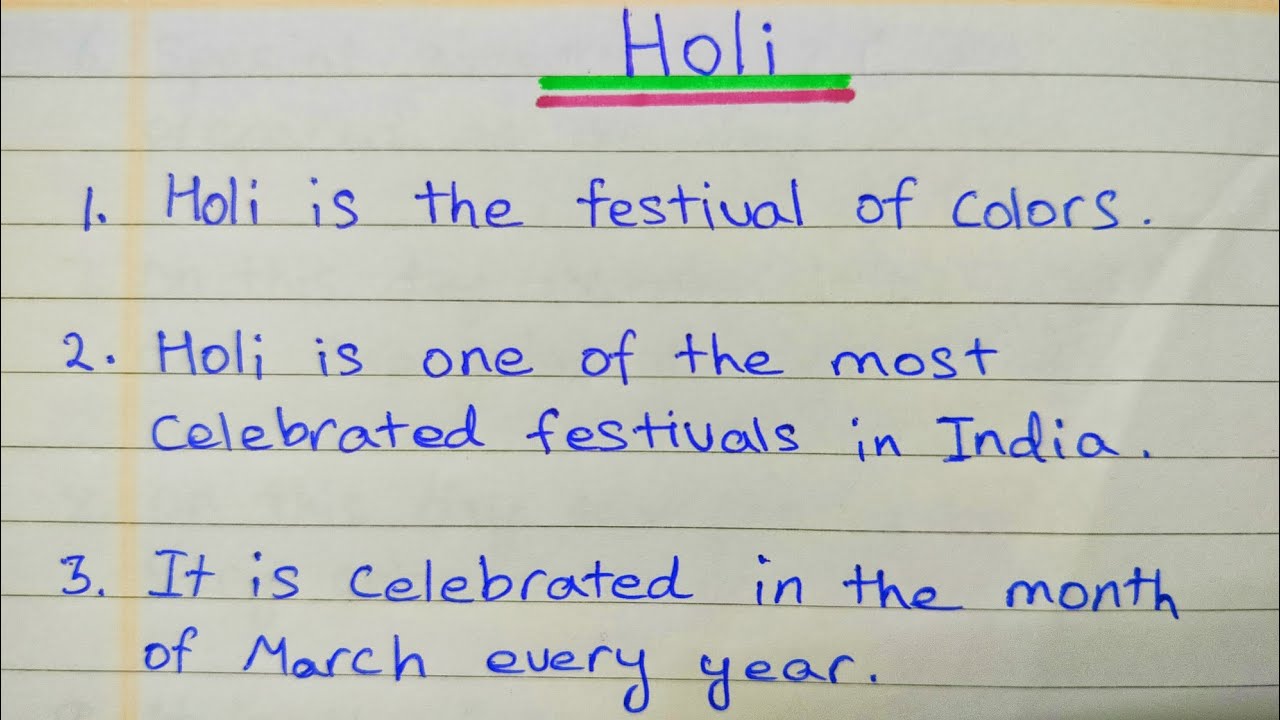 Holi
1. Holi is the festival of colors.
2. Holi is one of the most
celebrated festivals in India.
3. It is celebrated in the month
of March every year.